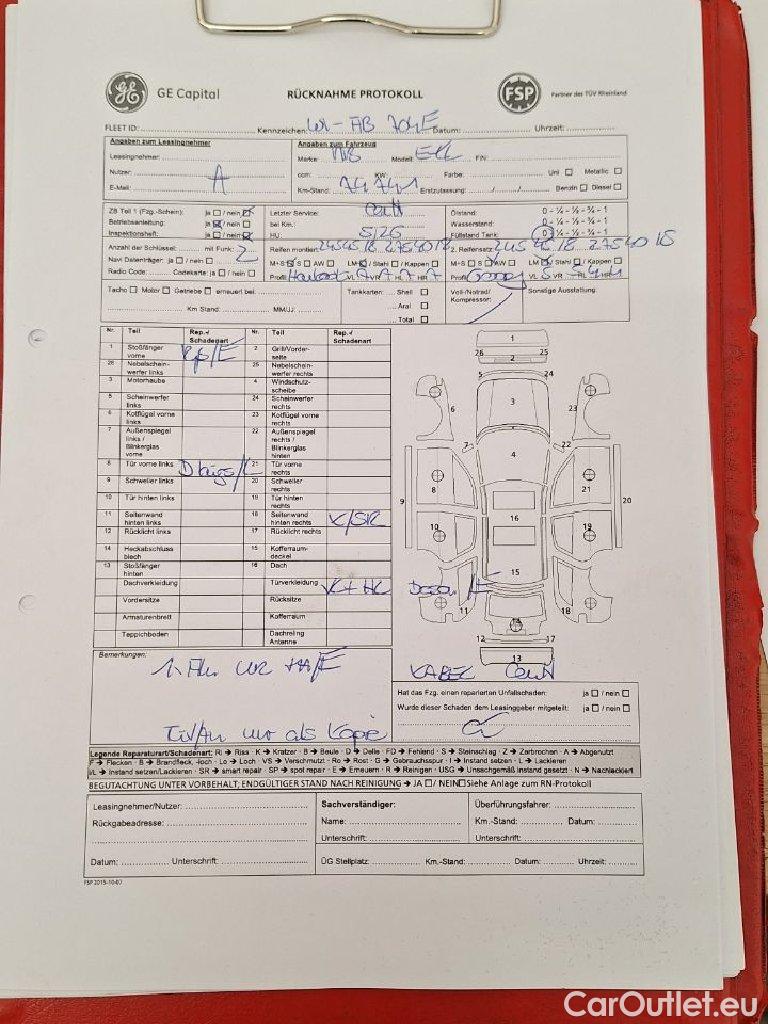 GE Capital
RÜCKNAHME PROTOKOLL
FSP
Partner des TÜV Rheinland
FLEET ID: Kennzeichen: Datum: Uhrzeit:
Angaben zum Leasingnehmer
Angaben zum Fahrzeug
Leasingnehmer:
Marke: Modell: FIN:
Nutzer: A
ccm: KW: Farbe: Uni Metallic
E-Mail:
Km-Stand: Erstzulassung: / / Benzin Diesel
ZB Teil 1 (Fzg.-Schein): ja / nein
Letzter Service:
Ölstand: 0 - ¼ - ½ - ¾ - 1
Betriebsanleitung: ja / nein
bei Km.:
Wasserstand: 0 - ¼ - ½ - ¾ - 1
Inspektionsheft: ja / nein
HU: 5/25
Füllstand Tank: 0 - ¼ - ½ - ¾ - 1
Anzahl der Schlüssel: mit Funk: 2
Reifen montiert: 2454518 2754018
2. Reifensatz: 2454518 2754018
Navi Datenträger: ja / nein
M+S S AW LM / Stahl / Kappen
M+S S AW LM / Stahl / Kappen
Radio Code: Codekarte: ja / nein
Profil VL VR HL HR
Profil VL VR HL HR
Tacho Motor Getriebe erneuert bei:
Tankkarten: Shell
Voll-/Notrad/
Kompressor:
Sonstige Ausstattung:
Aral
Km Stand: MM/JJ:
Total
Nr. Teil Rep.-/ Schadenart Nr. Teil Rep.-/ Schadenart
1 Stoßfänger vorne 2 Grill/Vorderseite
26 Nebelscheinwerfer links 25 Nebelscheinwerfer rechts
3 Motorhaube 4 Windschutzscheibe
5 Scheinwerfer links 24 Scheinwerfer rechts
6 Kotflügel vorne links 23 Kotflügel vorne rechts
7 Außenspiegel links / Blinkerglas vorne 22 Außenspiegel rechts / Blinkerglas hinten
8 Tür vorne links 21 Tür vorne rechts
9 Schweller links 20 Schweller rechts
10 Tür hinten links 19 Tür hinten rechts
11 Seitenwand hinten links 18 Seitenwand hinten rechts K/SR
12 Rücklicht links 17 Rücklicht rechts
14 Heckabschlussblech 15 Kofferraumdeckel
13 Stoßfänger hinten 16 Dach
Dachverkleidung Türverkleidung
Vordersitze Rücksitze
Armaturenbrett Kofferraum
Teppichboden Dachreling Antenne
1
26 25
2
5 24
3
6 23
7 22
4
8 21
9 20
16
10 19
15
11 18
14
12 17
13
Bemerkungen:
Hat das Fzg. einem reparierten Unfallschaden: ja / nein
Wurde dieser Schaden dem Leasinggeber mitgeteilt: ja / nein
Legende Reparaturart/Schadenart: RI → Riss · K → Kratzer · B → Beule · D → Delle · FD → Fehlend · S → Steinschlag · Z → Zerbrochen · A → Abgenutzt
F → Flecken · B → Brandfleck, -loch · Lo → Loch · VS → Verschmutzt · Ro → Rost · G → Gebrauchsspur · I → Instand setzen · L → Lackieren
I/L → Instand setzen/Lackieren · SR → smart repair · SP → spot repair · E → Erneuern · R → Reinigen · USG → Unsachgemäß instand gesetzt · N → Nachlackiert
BEGUTACHTUNG UNTER VORBEHALT; ENDGÜLTIGER STAND NACH REINIGUNG → JA / NEIN Siehe Anlage zum RN-Protokoll
Leasingnehmer/Nutzer:
Sachverständiger:
Überführungsfahrer:
Rückgabeadresse:
Name:
Km.-Stand: Datum:
Unterschrift:
Unterschrift:
Datum: Unterschrift:
ÜG Stellplatz: Km.-Stand: Datum: Uhrzeit:
CarOutlet.eu